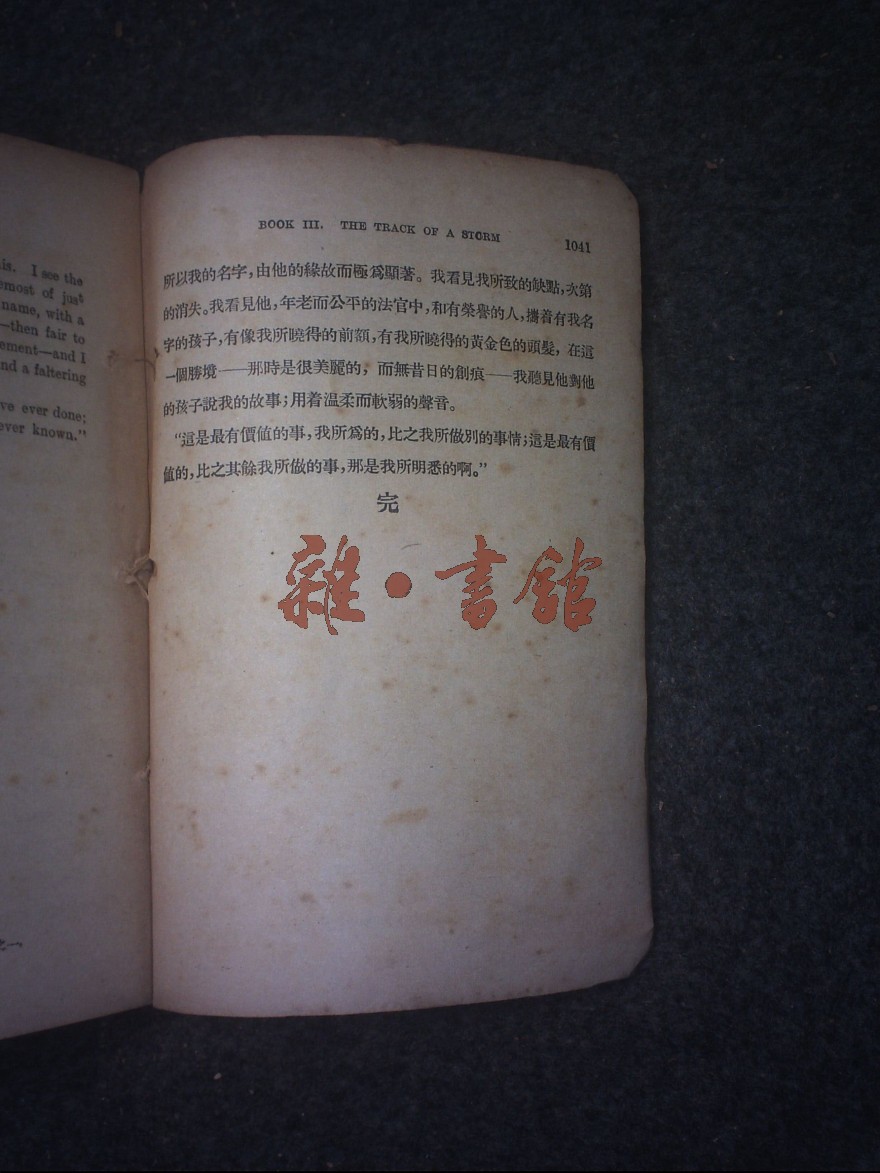 is. I see the
emost of just
name, with a
—then fair to
ement—and I
nd a faltering
ve ever done;
ever known."
之一
BOOK III. THE TRACK OF A STORM 1041
所以我的名字,由他的緣故而極爲顯著。我看見我所致的缺點,次第
的消失。我看見他,年老而公平的法官中,和有榮譽的人,攜着有我名
字的孩子,有像我所曉得的前額,有我所曉得的黃金色的頭髮,在這
一個勝境——那時是很美麗的,而無昔日的創痕——我聽見他對他
的孩子說我的故事;用着温柔而軟弱的聲音。
“這是最有價値的事,我所爲的,比之我所做別的事情;這是最有價
値的,比之其餘我所做的事,那是我所明悉的啊。”
完
雜•書館